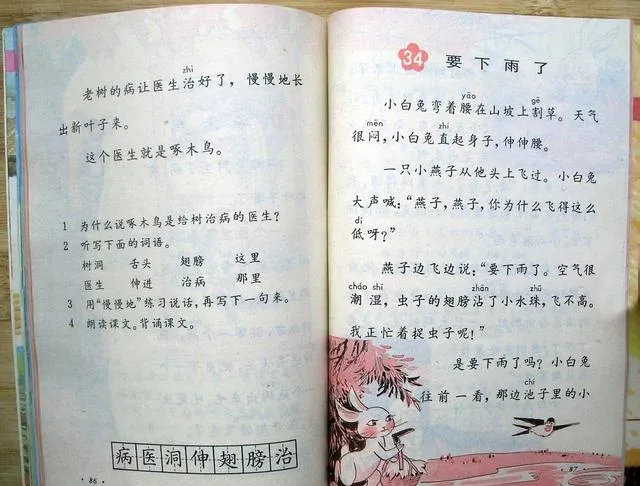 zhì
老树的病让医生治好了，慢慢地长
出新叶子来。
这个医生就是啄木鸟。
1 为什么说啄木鸟是给树治病的医生？
2 听写下面的词语。
树洞 舌头 翅膀 这里
医生 伸进 治病 那里
3 用“慢慢地”练习说话，再写下一句来。
4 朗读课文。背诵课文。
病医洞伸翅膀治
·86·
34 要下雨了
yāo gē
小白兔弯着腰在山坡上割草。天气
mēn
很闷，小白兔直起身子，伸伸腰。
一只小燕子从他头上飞过。小白兔
大声喊：“燕子，燕子，你为什么飞得这么
dī
低呀？”
燕子边飞边说：“要下雨了。空气很
cháo shī zhān zhū
潮湿，虫子的翅膀沾了小水珠，飞不高。
我正忙着捉虫子呢！”
是要下雨了吗？小白兔
chí
往前一看，那边池子里的小
·87·